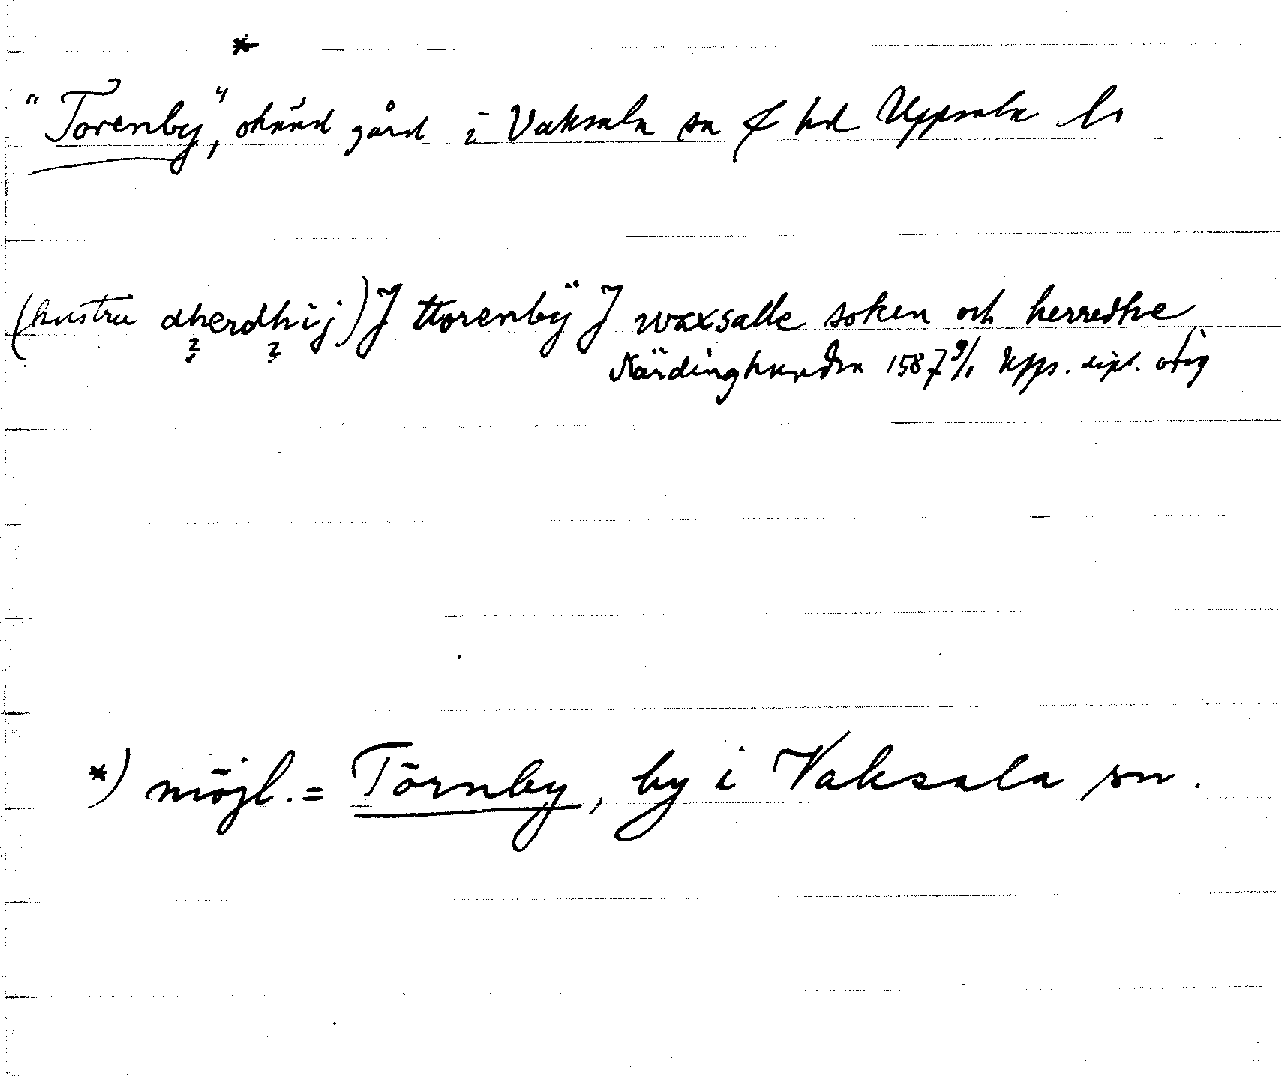 *
"Torenby", okänd gård i Vaksala sn & hd Uppsala l:
(hustru dherdhij) J ttorenbÿ J waxsalle soken och herredhe
? ?
Närdinghundra 1587 9/1 Upps. dipl. orig
*) möjl. = Törnby, by i Vaksala sn.